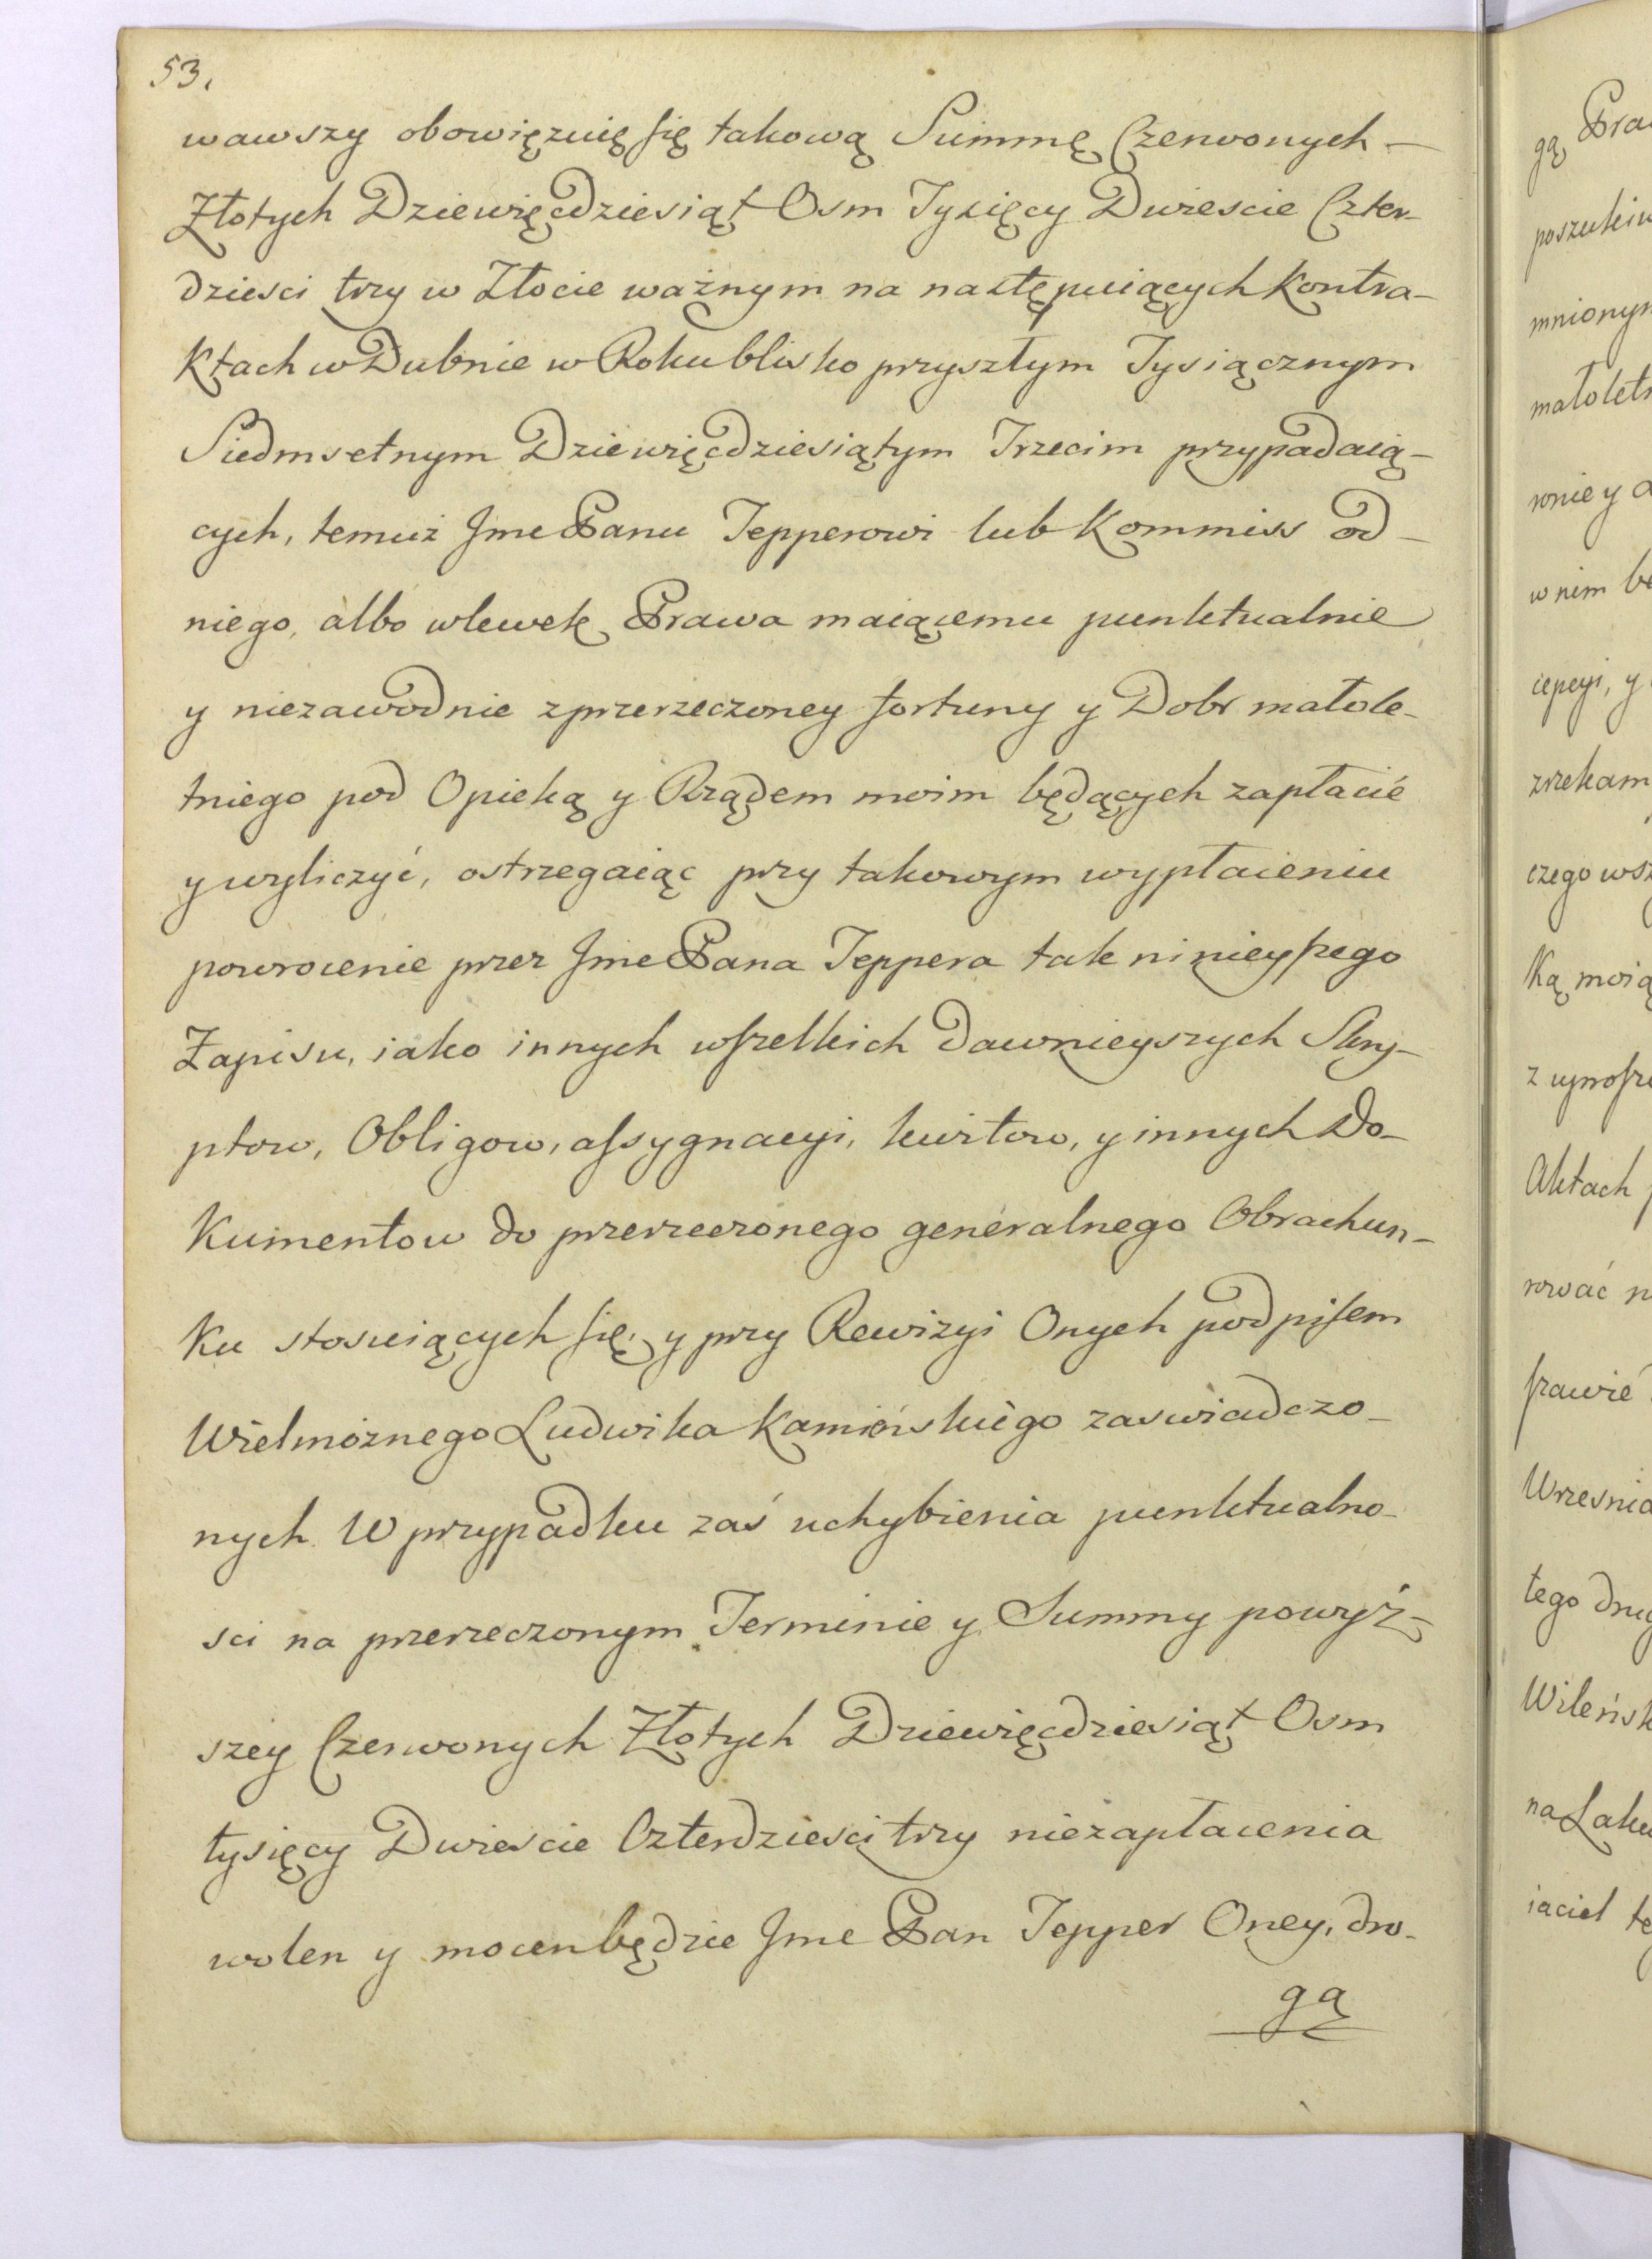 53.
wawszy obowięzuię się takową Summę Czerwonych
Złotych Dziewięcdziesiąt Osm Tysięcy Dwiescie Czter-
dziesci trzy w Złocie ważnym na następuiących Kontra-
Ktach w Dubnie w Roku blisko przyszłym Tysiącznym
Siedmsetnym Dziewięcdziesiątym Trzecim przypadaią-
cych, temuż Jmc Panu Tepperowi lub Kommiss od
niego, albo wlewek Prawa maiącemu punktualnie
y niezawodnie z przerzeczoney fortuny y Dobr małole-
tniego pod Opieką y Rządem moim będących zapłacić
y wyliczyć, ostrzegaiąc przy takowym wypłaceniu
powrocenie przez Jmc Pana Teppera tak ninieyszego
Zapisu, iako innych wszelkich dawnieyszych Skry-
ptow, Obligow, assygnacyi, kwitow, y innych Do-
Kumentow do przerzeczonego generalnego Obrachun-
Ku stosuiących się, y przy Rewizyi Onych podpisem
Wielmożnego Ludwika Kamińskiego zaswiadczo-
nych. W przypadku zaś uchybienia punktualno-
sci na przerzeczonym Terminie y Summy powyż-
szey Czerwonych Złotych Dziewięcdziesiąt Osm
tysięcy Dwiescie Czterdziesci trzy niezapłacenia
wolen y mocen będzie Jmc Pan Tepper Oney, dro-
gą
gą
mnionym
w nim
zrzekam
Ką moią
Aktach
rować
Wrzesnia
tego